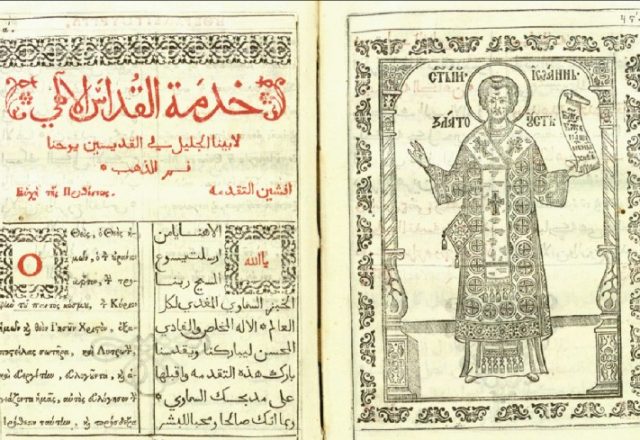 خدمة القداس الالهي
لابينا الجليل في القديسين يوحنا
فم الذهب
Εὐχὴ τῆς Προθέσεως.
افشين التقدمه
Ὁ Θεὸς, ὁ Θεὸς ἡ-
μῶν, ὁ οὐράνιον
ἄρτον,
τοῦ παντὸς κόσμου, Κύριον
ἡμῶν θεὸν Ἰησοῦν Χριστὸν, ἐξα-
ποστείλας σωτῆρα, καὶ Λυτρωτὴν,
καὶ εὐεργέτην, εὐλογοῦντα, ἁ-
γιάζοντα ἡμᾶς, αὐτὸς εὐλόγησον
πρόθεσιν ταύτην, πρόσδεξαι
ياالله
الاهنا يا من
ارسلت يسوع
المسيح ربنا
الخبز السماوي المغدي لكل
العالم * الاله المخلص والفادي
المحسن ليباركنا ويقدسنا
بارك هذه التقدمه واقبلها
على مدبحك السماوي
انك صالحا ومحبا للبشر
СТЫЙ ІѠАННЪ
ЗЛАТО УСТЪ